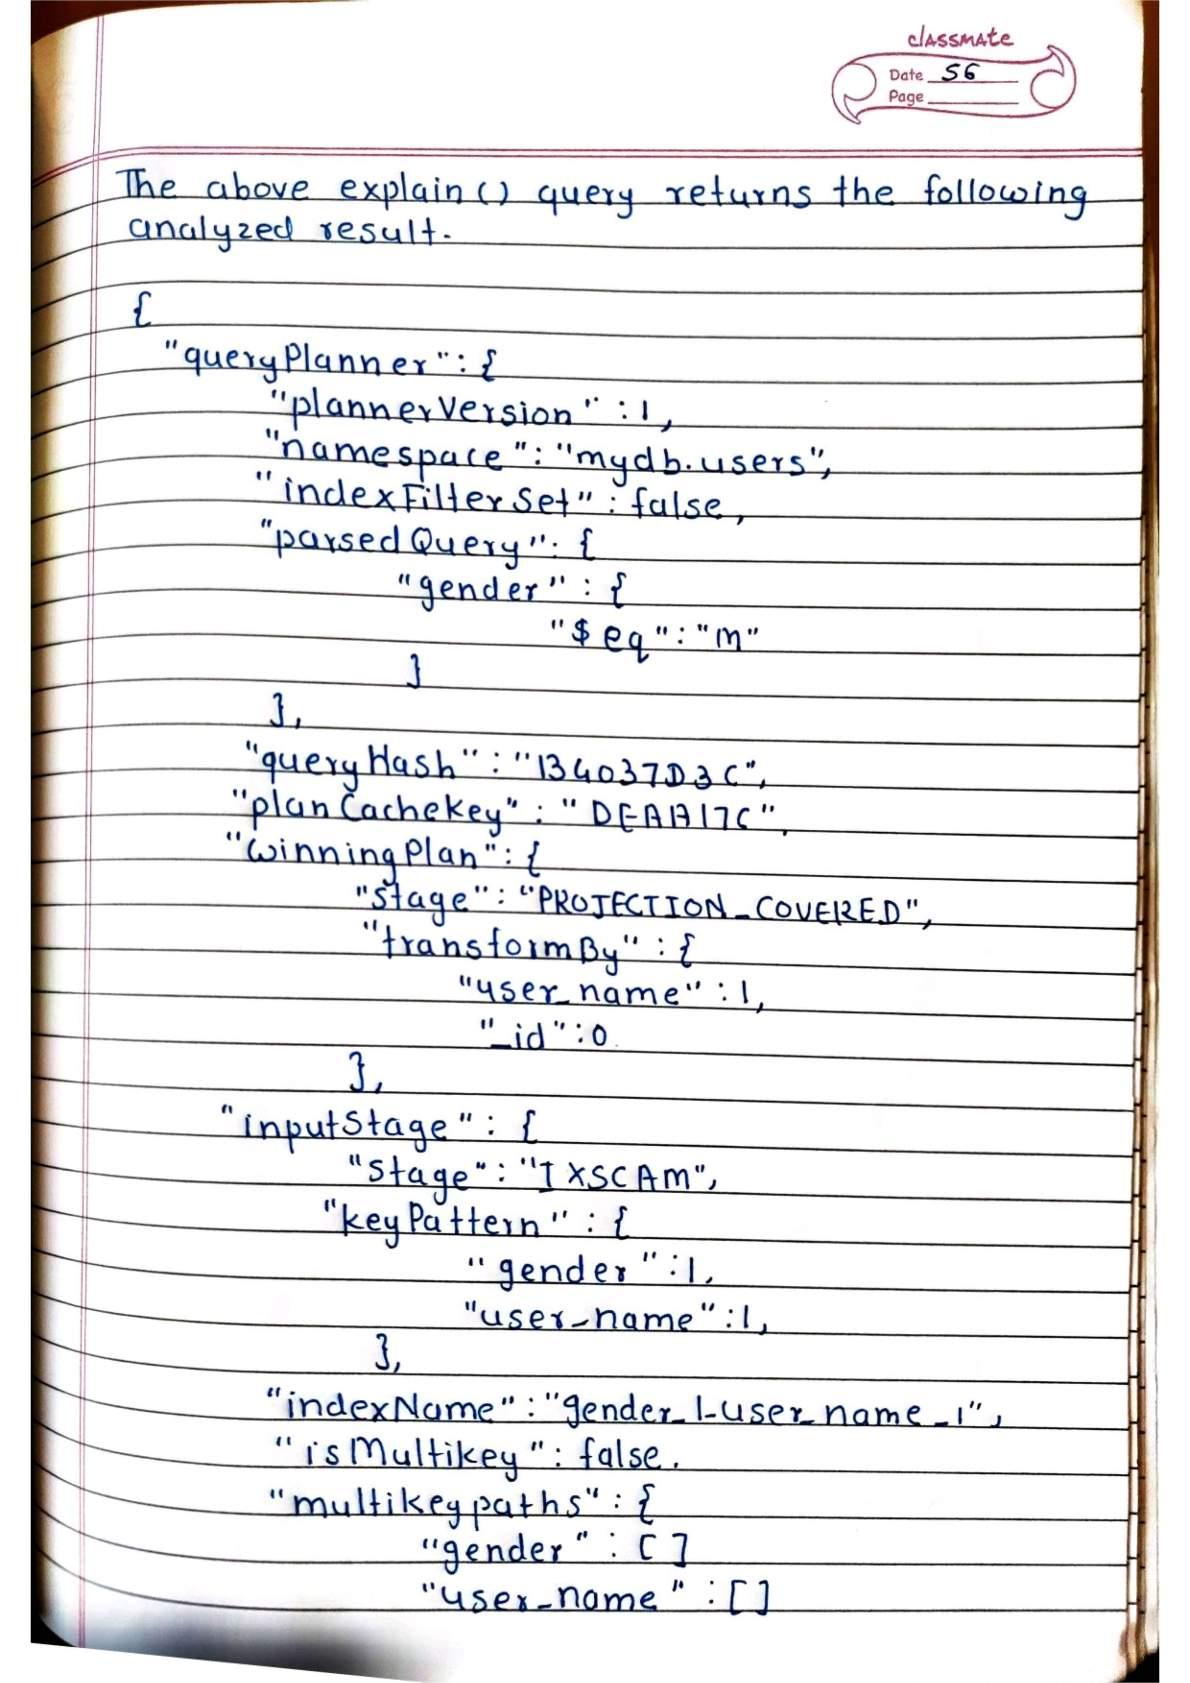 classmate
Date 56
Page
The above explain() query returns the following
analyzed result.
{
"queryPlanner":{
"plannerVersion":1,
"namespace":"mydb.users",
"indexFilterSet":false,
"parsedQuery":{
"gender":{
"$eq":"M"
}
},
"queryHash":"134037D3C",
"planCacheKey":"DEAA17C",
"winningPlan":{
"stage":"PROJECTION_COVERED",
"transformBy":{
"user_name":1,
"_id":0
},
"inputStage":{
"stage":"IXSCAM",
"keyPattern":{
"gender":1,
"user_name":1,
},
"indexName":"gender_1_user_name_1",
"isMultikey":false,
"multikeypaths":{
"gender":[]
"user_name":[]